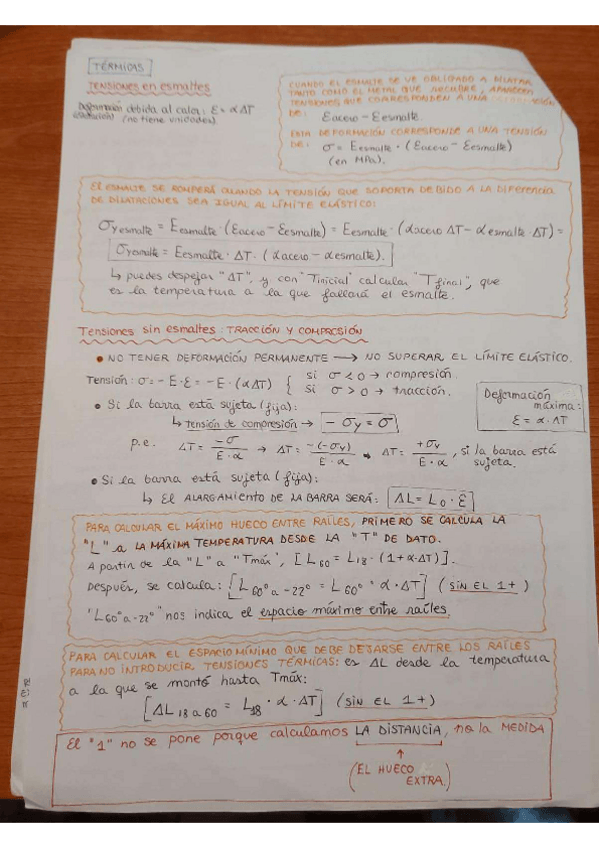 TÉRMICAS
TENSIONES en esmaltes
Deformación debida al calor: ε = α ΔT
(dilatación) (no tiene unidades)
CUANDO EL ESMALTE SE VE OBLIGADO A DILATAR
TANTO COMO EL METAL QUE RECUBRE, APARECEN
TENSIONES QUE CORRESPONDEN A UNA
DE: εacero - εesmalte.
ESTA DEFORMACIÓN CORRESPONDE A UNA TENSIÓN
DE: σ = Eesmalte · (εacero - εesmalte)
(en MPa).
El ESMALTE SE ROMPERÁ CUANDO LA TENSIÓN QUE SOPORTA DEBIDO A LA DIFERENCIA
DE DILATACIONES SEA IGUAL AL LÍMITE ELÁSTICO:
σy esmalte = Eesmalte · (εacero - εesmalte) = Eesmalte · (αacero ΔT - αesmalte · ΔT) =
σy esmalte = Eesmalte · ΔT · (αacero - αesmalte).
↳ puedes despejar "ΔT", y con "Tinicial" calcular "Tfinal", que
es la temperatura a la que fallará el esmalte.
Tensiones sin esmaltes: TRACCIÓN Y COMPRESIÓN
• NO TENER DEFORMACIÓN PERMANENTE → NO SUPERAR EL LÍMITE ELÁSTICO.
Tensión: σ = - E · ε = - E · (α ΔT) { si σ < 0 → compresión.
si σ > 0 → tracción.
Deformación
máxima:
ε = α · ΔT
• Si la barra está sujeta (fija):
↳ Tensión de compresión → - σy = σ
p.e. ΔT = -σ / E · α → ΔT = -(-σy) / E · α → ΔT = +σy / E · α , si la barra está
sujeta.
• Si la barra está sujeta (fija):
↳ El ALARGAMIENTO DE LA BARRA SERÁ: ΔL = L0 · ε
PARA CALCULAR EL MÁXIMO HUECO ENTRE RAÍLES, PRIMERO SE CALCULA LA
"L" a LA MÁXIMA TEMPERATURA DESDE LA "T" DE DATO.
A partir de la "L" a "Tmáx", [L60 = L18 · (1 + α · ΔT)].
Después, se calcula: [L60° a -22° = L60° · α · ΔT] (SIN EL 1+)
"L60° a -22°" nos indica el espacio máximo entre raíles.
PARA CALCULAR EL ESPACIO MÍNIMO QUE DEBE DEJARSE ENTRE LOS RAÍLES
PARA NO INTRODUCIR TENSIONES TÉRMICAS: es ΔL desde la temperatura
a la que se montó hasta Tmáx:
[ΔL 18 a 60 = L18 · α · ΔT] (SIN EL 1+)
El "1" no se pone porque calculamos LA DISTANCIA, no la MEDIDA
↑
(EL HUECO
EXTRA.)